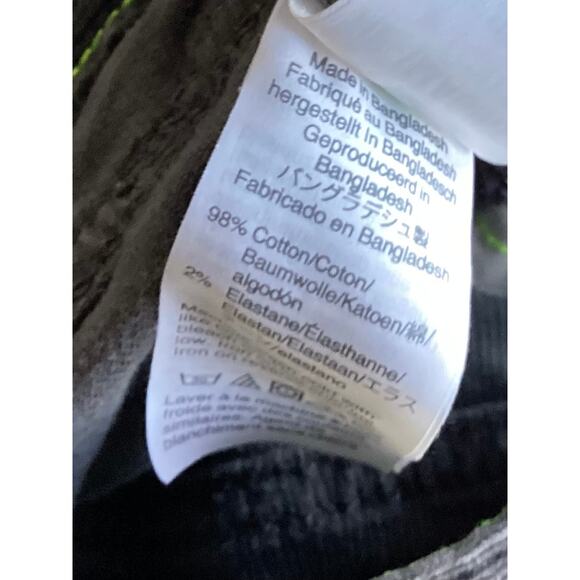 Made in Bangladesh
Fabriqué au Bangladesh
hergestellt in Bangladesch
Geproduceerd in
Bangladesh
バングラデシュ製
Fabricado en Bangladesh
98% Cotton/Coton/
Baumwolle/Katoen/綿/
algodón
2% Elastane/Élasthanne/
Elastan/Elastaan/エラス
elastano
like
low.
iron on
Laver à la machine à
froide avec des
similaires.
blanchiment